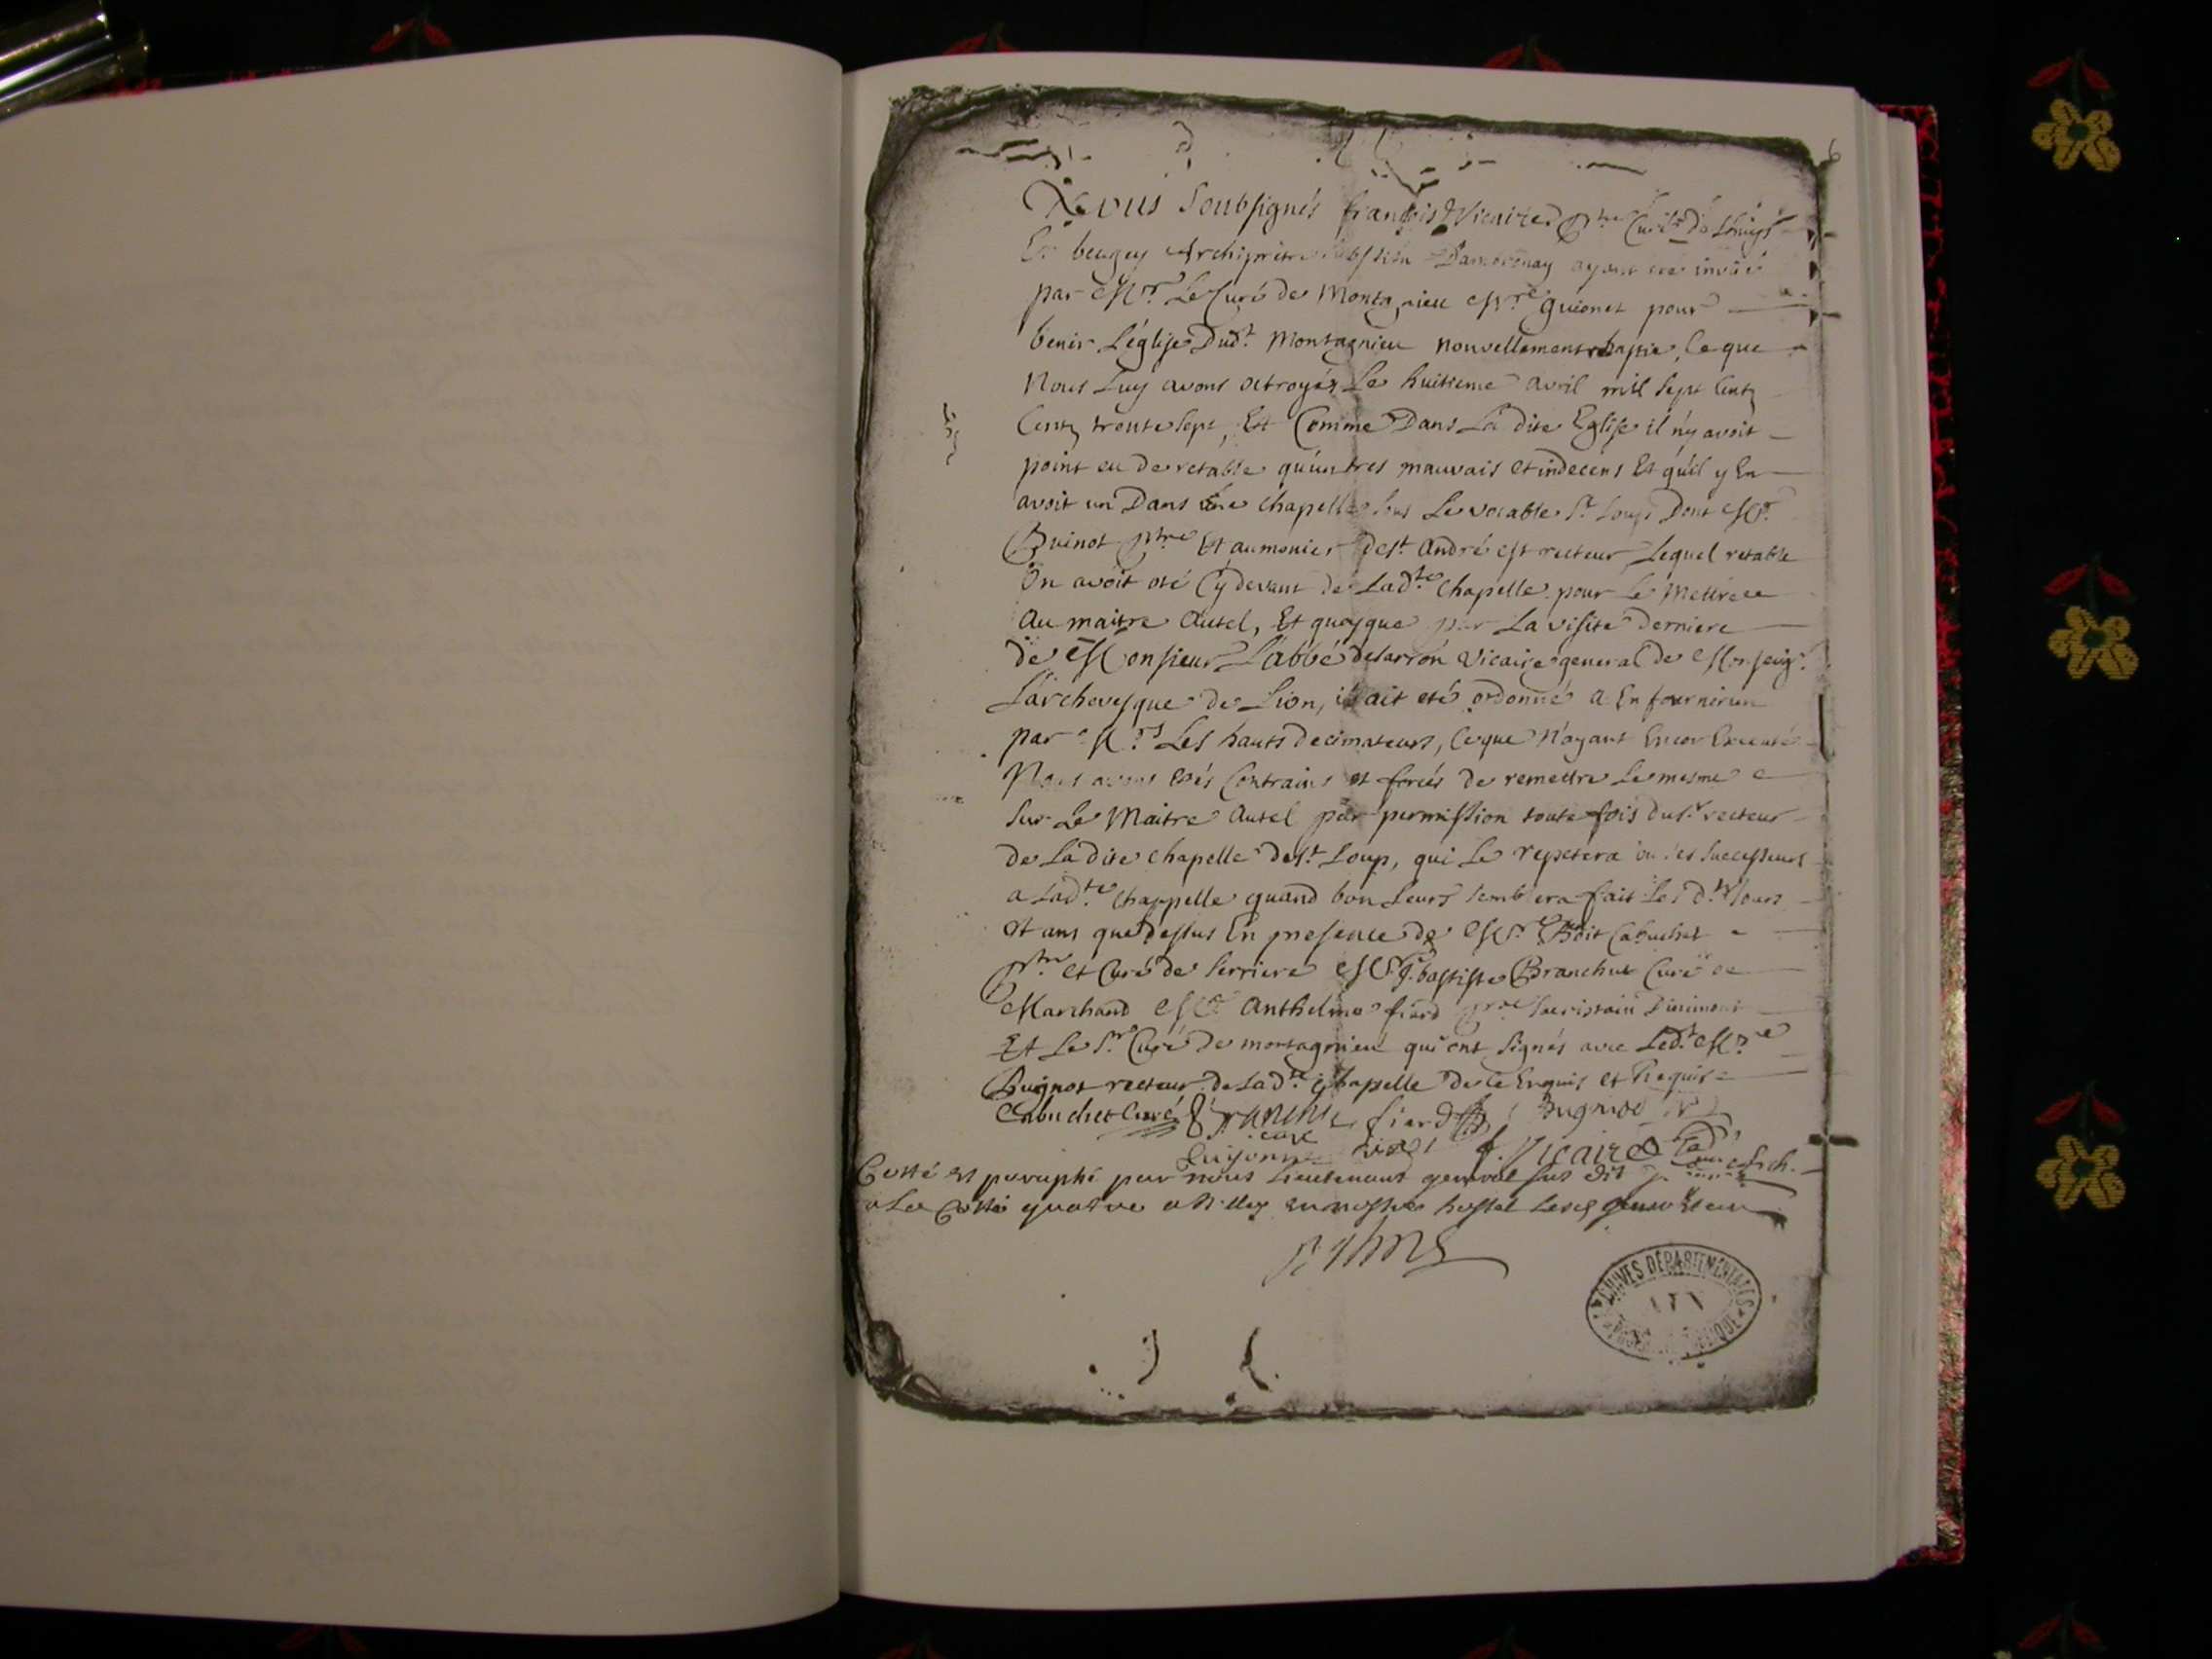 6
Nous Soubsignés françois Vicaire ptre Curé de
En beugey Archiprêtre ayant été invité
par Mr. Le Curé de Montagnieu Mre guionet pour
benir L'église Dudt. Montagnieu nouvellement rebastie, Ce que
Nous Luy avons octroyés Le huitieme avril mil sept Centz
Centz trente sept, Et Comme Dans La dite Eglise il n'y avoit
point eu de retable qu'un tres mauvais et indecens Et qu'il y En
avoit un Dans une chapelle sous Le vocable St. Loup Dont Mr.
ptre Et aumonier de St. André est recteur Lequel retable
On avoit oté Cy devant de Ladte. Chapelle pour Le Mettre
Au maitre Autel, Et quoyque par La visite derniere
de Monsieur L'abbé delarron Vicaire general de Monseigr.
L'archevesque de Lion, il ait eté ordonné a En fournir un
par Mrs. Les hauts decimateurs, Ce que N'ayant Encor Executé
Nous avons etés Contrains et forcés de remettre Le mesme
Sur Le Maitre Autel par permission toute fois du Sr. recteur
de La dite chapelle de St. Loup, qui Le repetera ou ses successeurs
a Ladte. Chappelle quand bon Leurs semblera fait Les dts. Jours
Et ans que Dessus En presence de Mre. Cabuchet
ptre et Curé de Serriere Mre. J. baptiste Branchut Curé de
Marchand Mre. Anthelme fiard ptre Sacristain
Et Le Sr. Curé de montagnieu qui ont signés avec Ledt. Mre.
recteur de Ladte. Chapelle de Ce Enquis et Requis
Cabuchet Curé fiard
curé f. Vicaire
Cotté et paraphé par nous Lieutenant general sus dit
a La Cotte quatre a Belley en nostre hostel
ARCHIVES DÉPARTEMENTALES
AIN